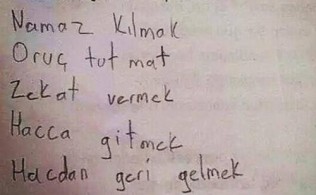 Namaz Kılmak
Oruç tut mat
Zekat vermek
Hacca gitmek
Hacdan geri gelmek